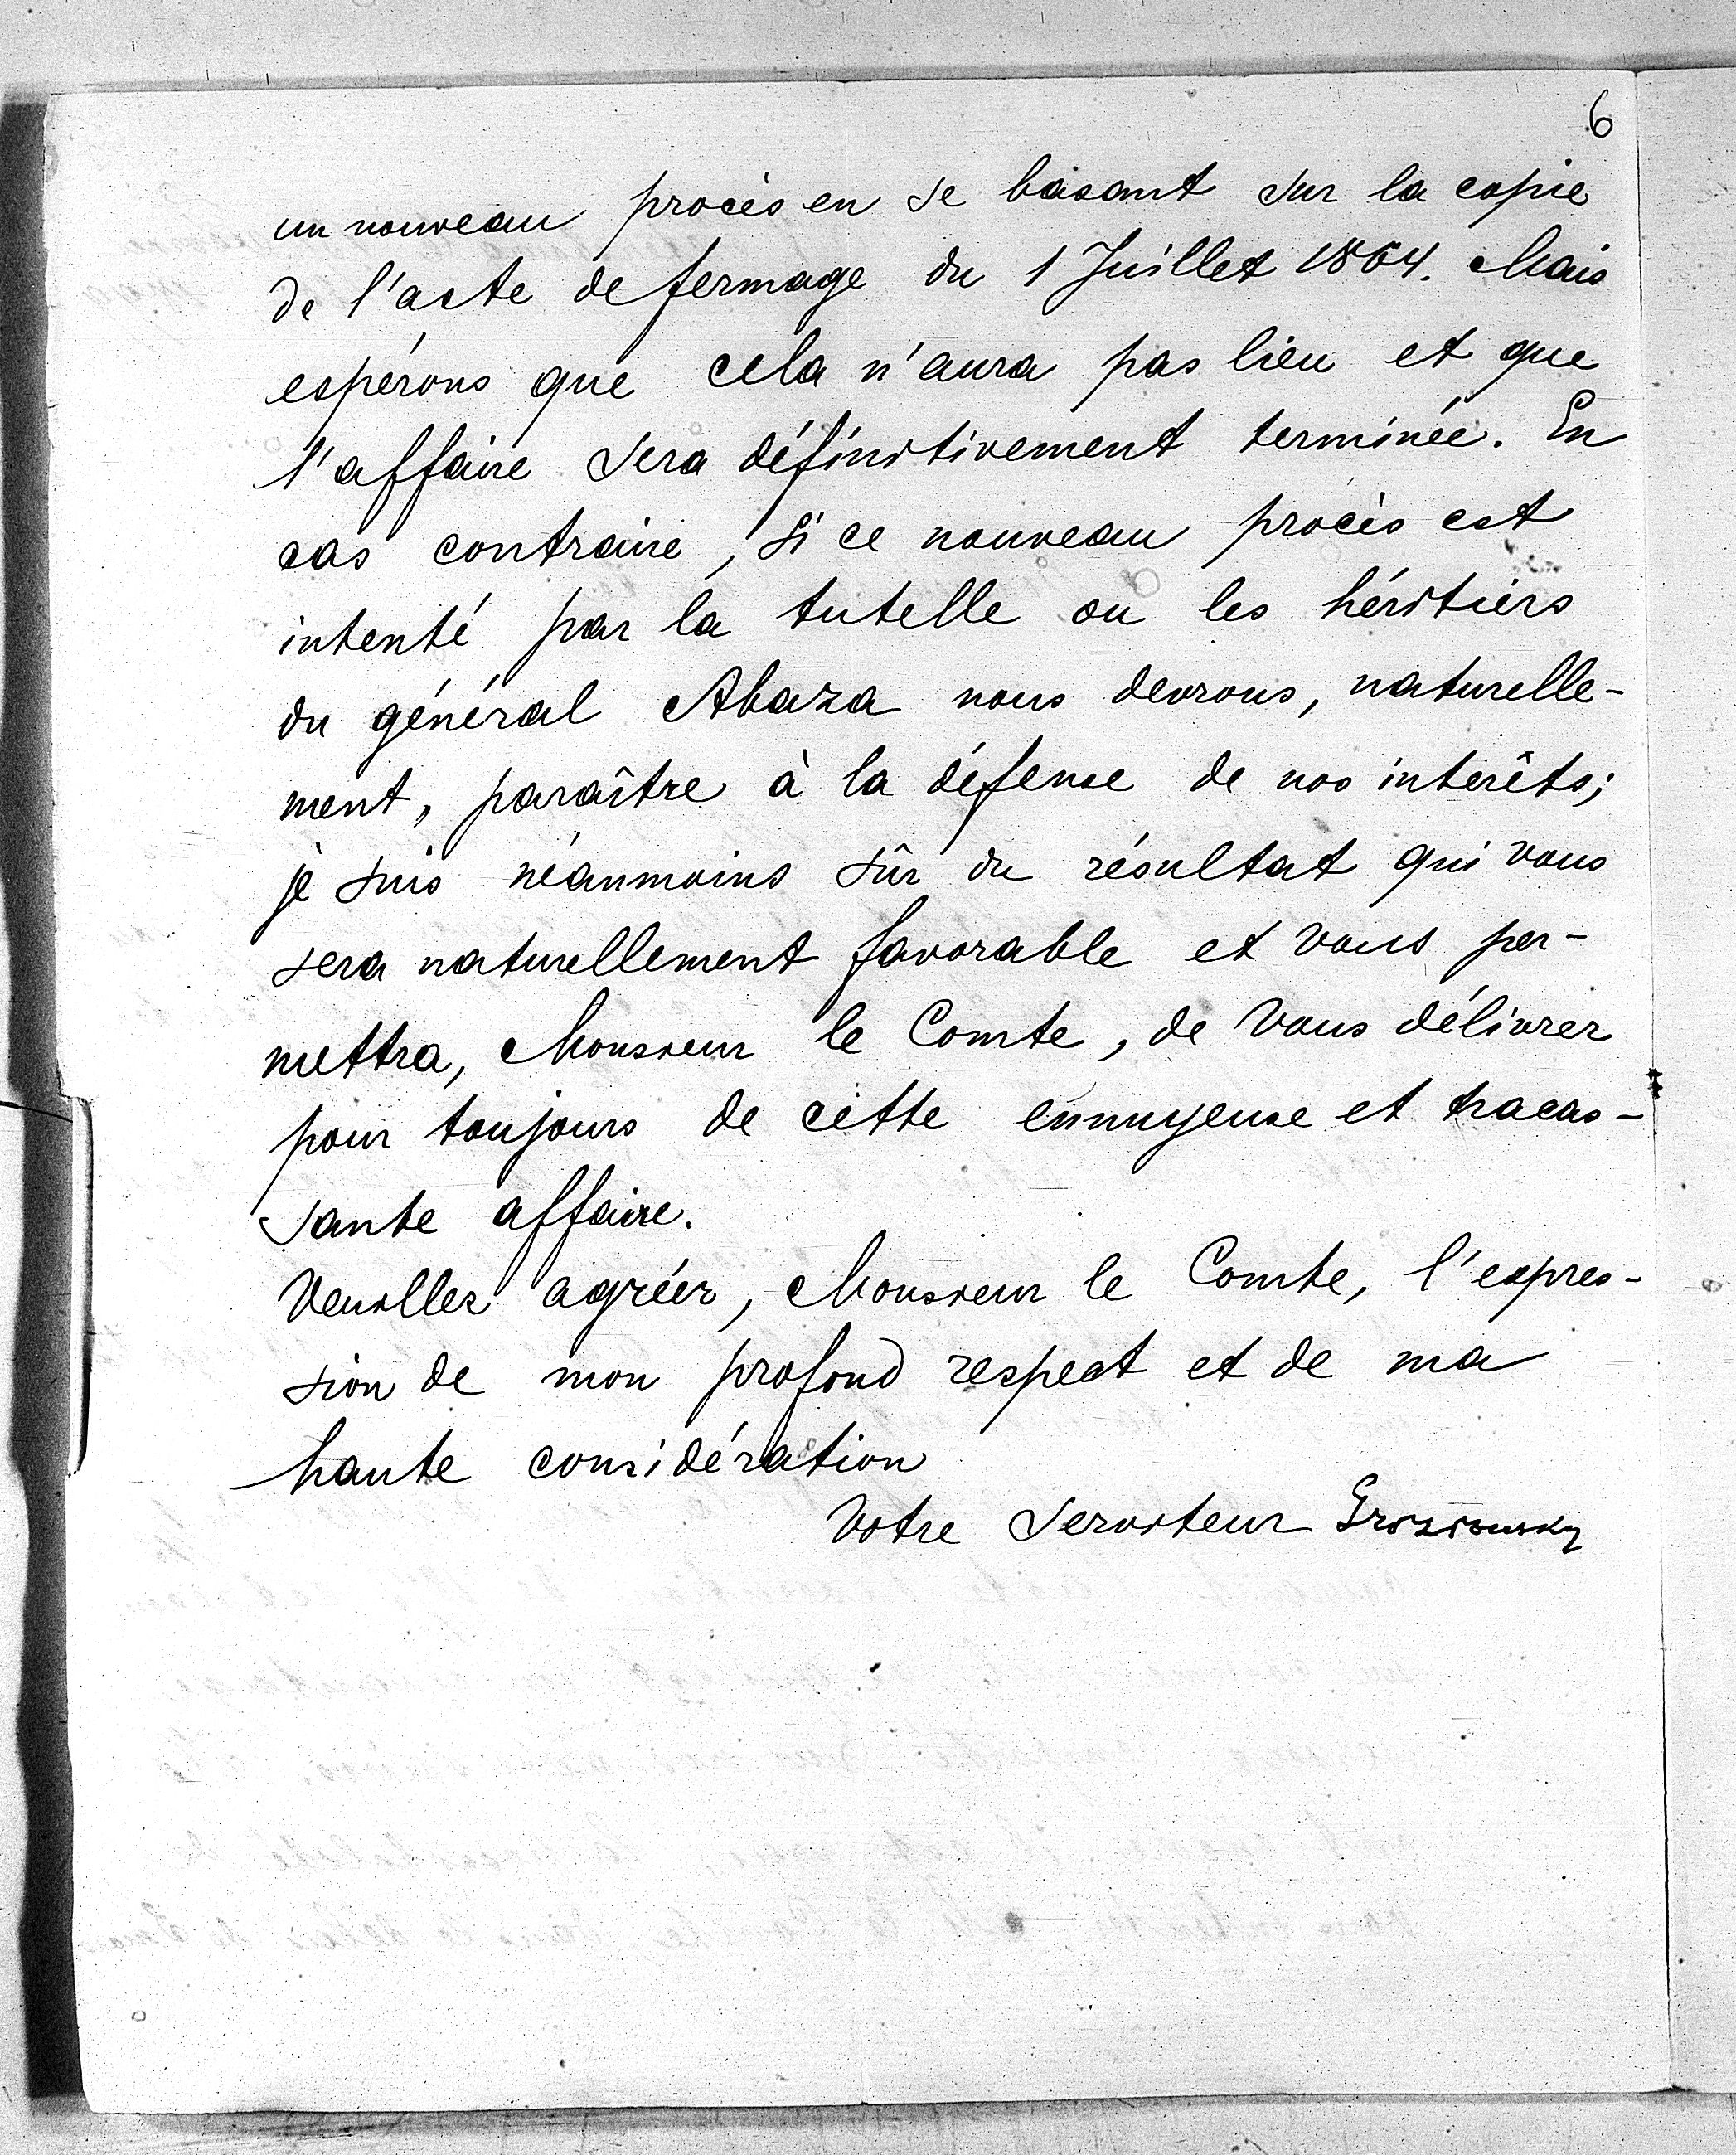 6
un nouveau procès en se basant sur la copie
de l'acte de fermage du 1 Juillet 1864. Mais
espérons que cela n'aura pas lieu et que
l'affaire sera définitivement terminée. En
cas contraire, si ce nouveau procès est
intenté par la tutelle ou les héritiers
du général Abaza nous devrons, naturelle-
ment, paraître à la défense de nos intérêts;
je suis néanmoins sûr du résultat qui vous
sera naturellement favorable et vous per-
mettra, Monsieur le Comte, de Vous délivrer
pour toujours de cette ennuyeuse et tracas-
sante affaire.
Veuillez agréer, Monsieur le Comte, l'expres-
sion de mon profond respect et de ma
haute considération
Votre Serviteur